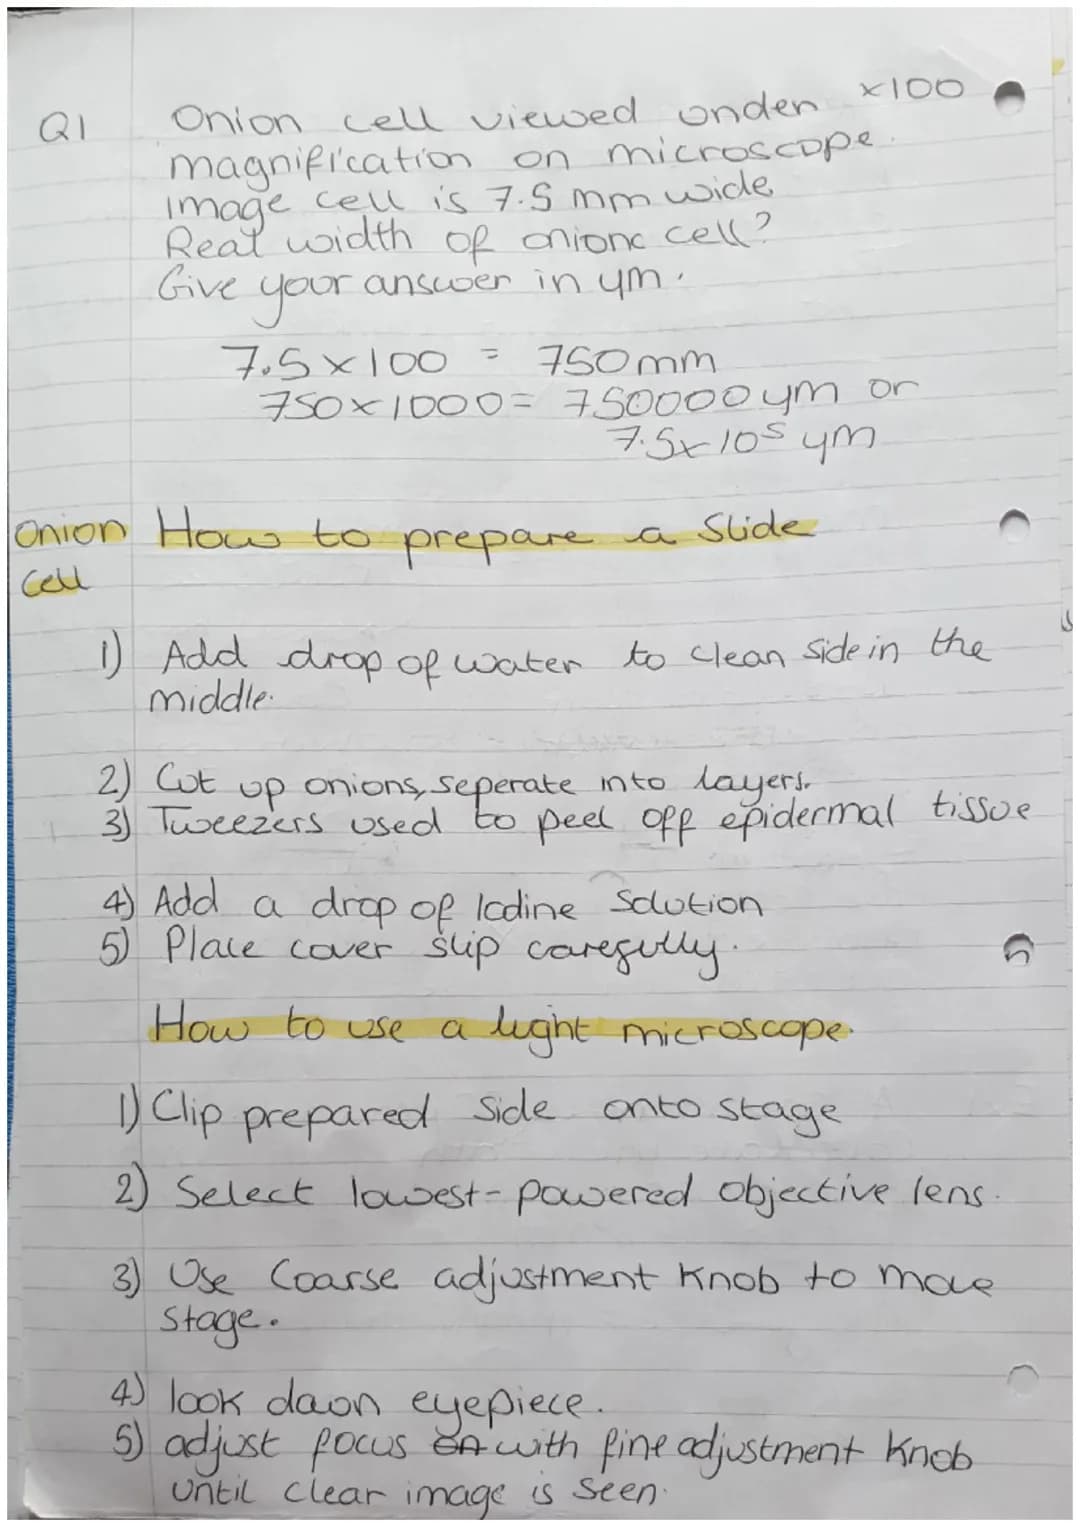 Q1 Onion cell viewed under x100
magnification on microscope.
Image cell is 7.5 mm wide
Real width of onionc cell?
Give your answer in ym.
7.5 x 100 = 750mm
750 x 1000 = 750000 ym or
7.5x 10⁵ ym
Onion How to prepare a Slide
Cell
1) Add drop of water to clean side in the
middle.
2) Cut up onions, seperate into layers.
3) Tweezers used to peel off epidermal tissue
4) Add a drop of Iodine Solution
5) Place cover slip carefully.
How to use a light microscope.
1) Clip prepared side onto stage
2) Select lowest-powered objective lens.
3) Use Coarse adjustment knob to move
stage.
4) look down eyepiece.
5) adjust focus with fine adjustment Knob
until clear image is seen.